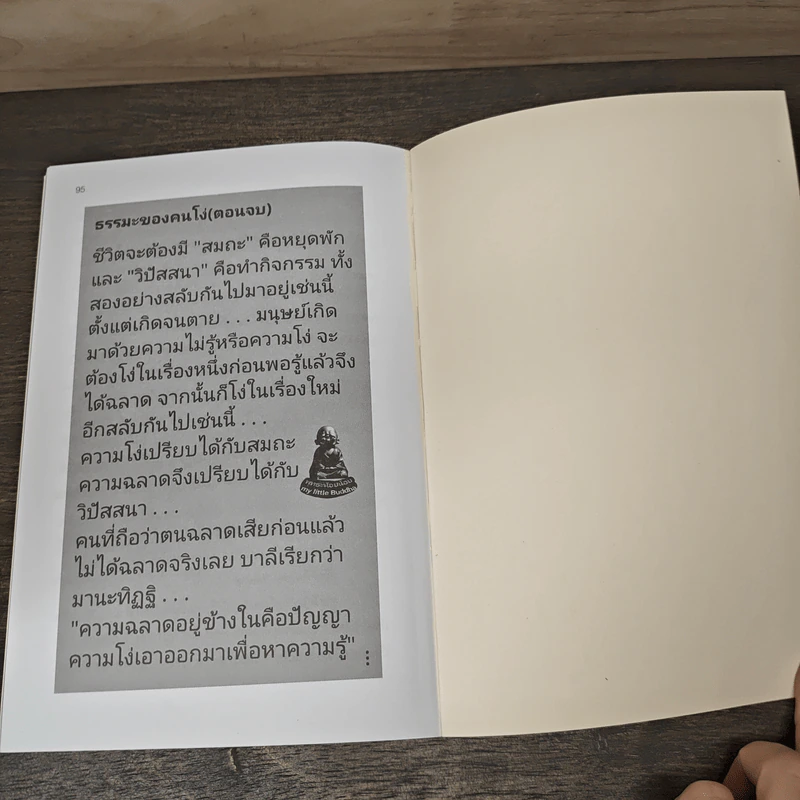 95
ธรรมะของคนโง่(ตอนจบ)
ชีวิตจะต้องมี "สมถะ" คือหยุดพัก
และ "วิปัสสนา" คือทำกิจกรรม ทั้ง
สองอย่างสลับกันไปมาอยู่เช่นนี้
ตั้งแต่เกิดจนตาย . . . มนุษย์เกิด
มาด้วยความไม่รู้หรือความโง่ จะ
ต้องโง่ในเรื่องหนึ่งก่อนพอรู้แล้วจึง
ได้ฉลาด จากนั้นก็โง่ในเรื่องใหม่
อีกสลับกันไปเช่นนี้ . . .
ความโง่เปรียบได้กับสมถะ
ความฉลาดจึงเปรียบได้กับ
วิปัสสนา . . .
my little Buddha
คนที่ถือว่าตนฉลาดเสียก่อนแล้ว
ไม่ได้ฉลาดจริงเลย บาลีเรียกว่า
มานะทิฏฐิ . . .
"ความฉลาดอยู่ข้างในคือปัญญา
ความโง่เอาออกมาเพื่อหาความรู้"